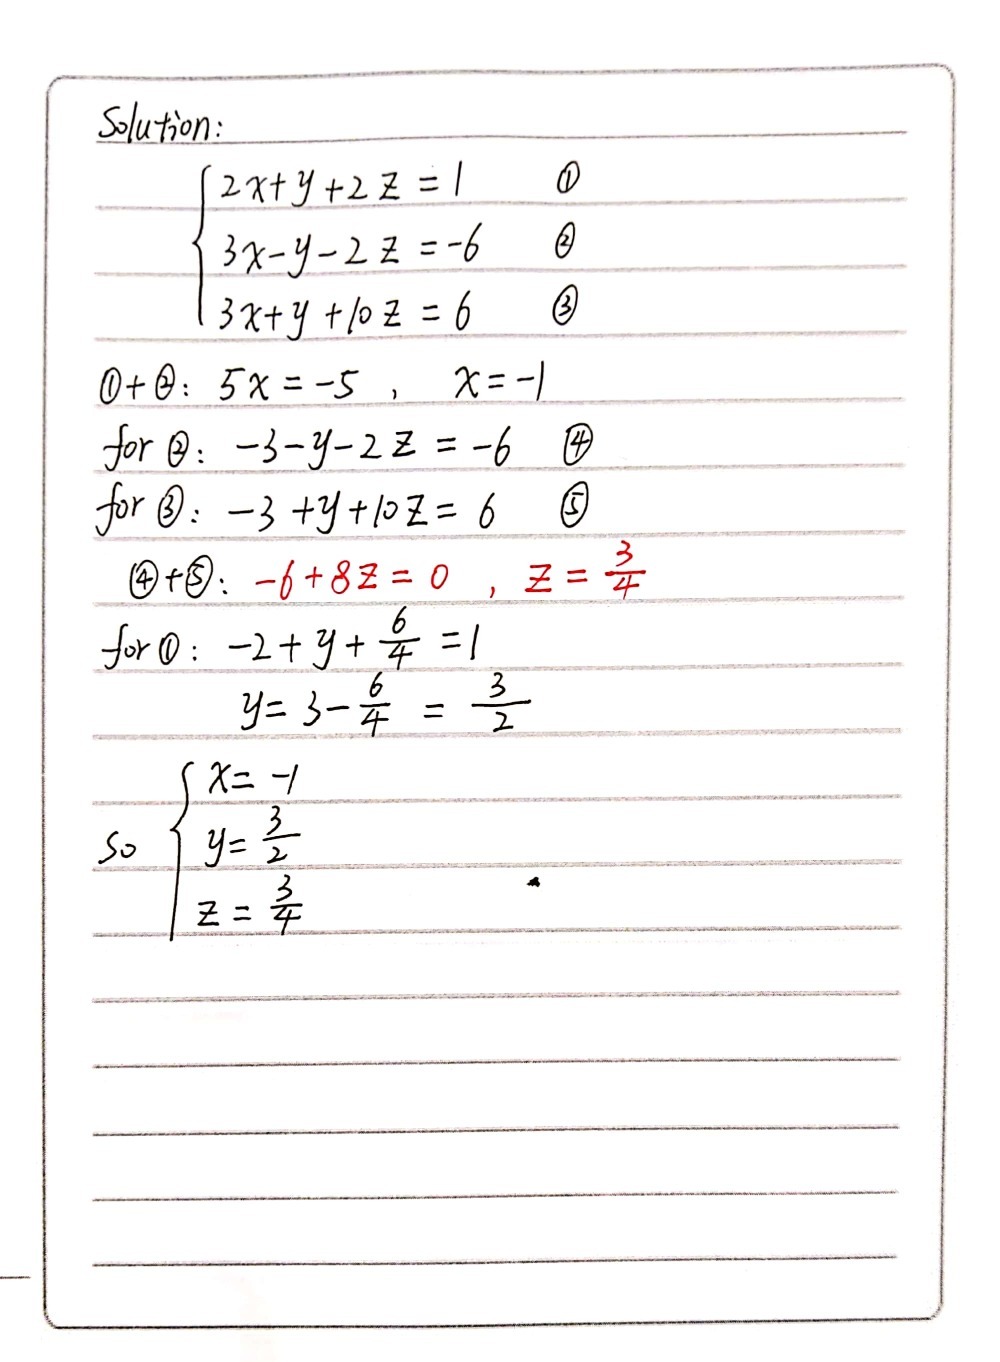 Solution:
2x+y+2z=1 ①
3x-y-2z=-6 ②
3x+y+10z=6 ③
①+②: 5x=-5, x=-1
for②: -3-y-2z=-6 ④
for③: -3+y+10z=6 ⑤
④+⑤: -6+8z=0, z=3/4
for①: -2+y+6/4=1
y=3-6/4=3/2
So { x=-1
y=3/2
z=3/4